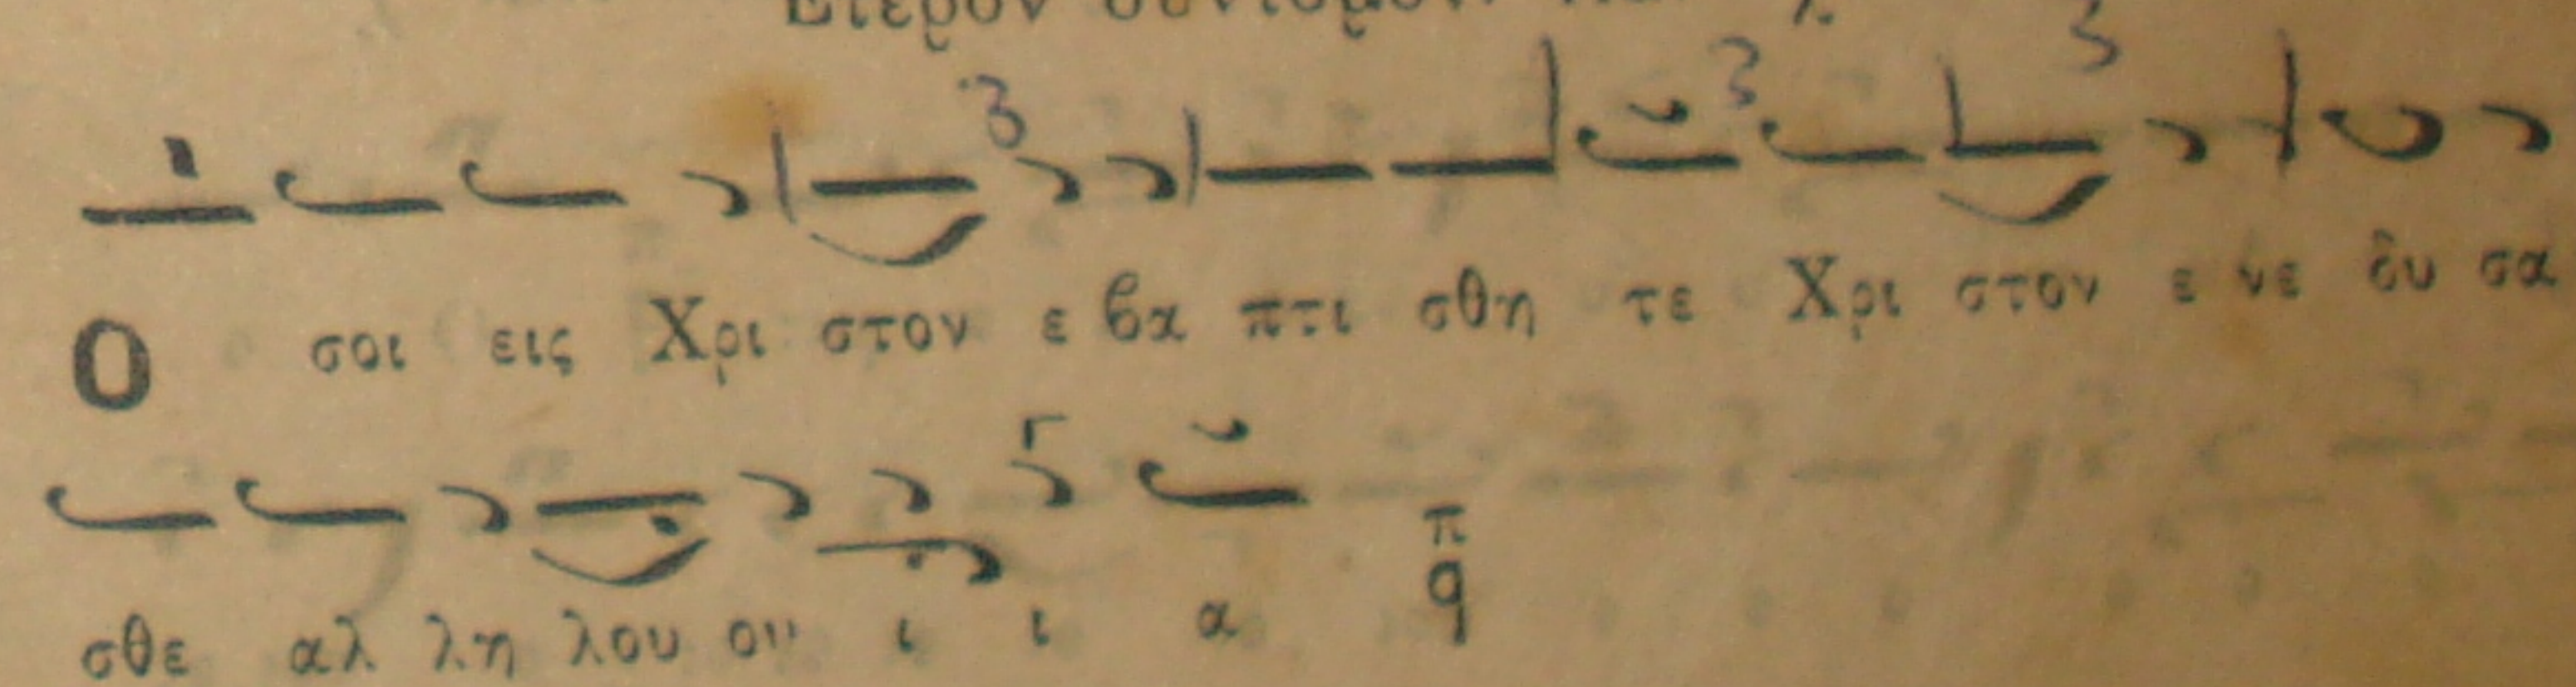 Ετερον
3 3 3
Ο σοι εις Χρι στον ε βα πτι σθη τε Χρι στον ε νε δυ σα
σθε αλ λη λου ου ι ι α π q